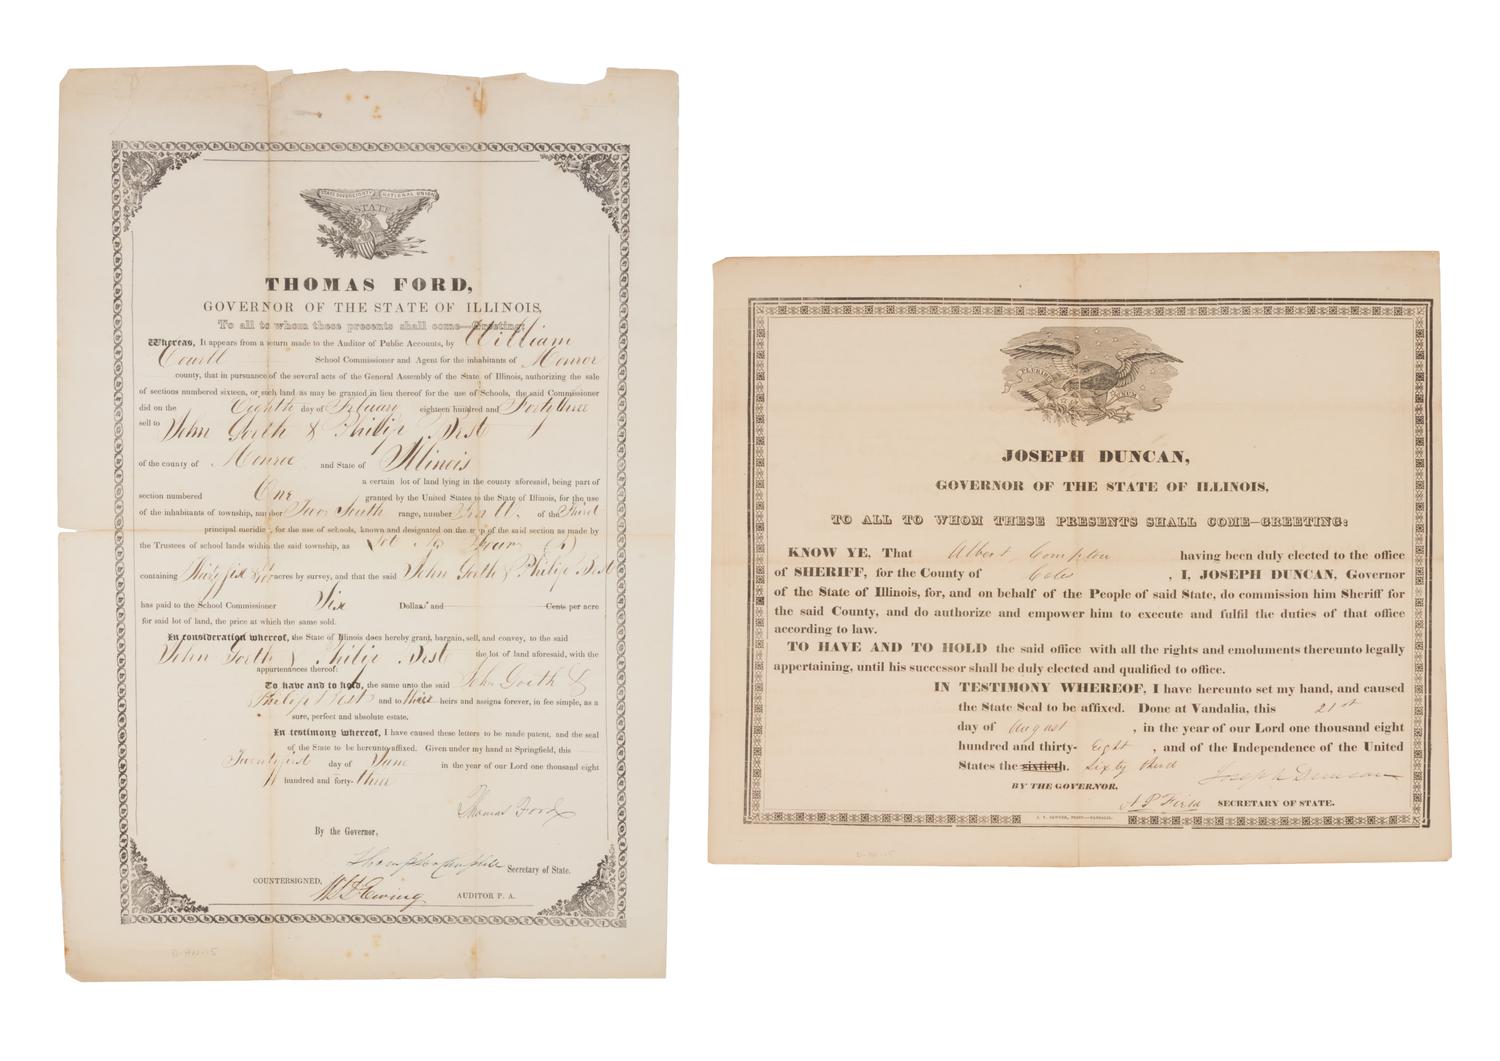 STATE SOVEREIGNTY NATIONAL UNION
STATE
THOMAS FORD,
GOVERNOR OF THE STATE OF ILLINOIS,
To all to whom these presents shall come—Greeting:
Whereas, It appears from a return made to the Auditor of Public Accounts, by William
Cowell School Commissioner and Agent for the inhabitants of Monroe
county, that in pursuance of the several acts of the General Assembly of the State of Illinois, authorizing the sale
of sections numbered sixteen, or such land as may be granted in lieu thereof for the use of Schools, the said Commissioner
did on the Eighth day of February eighteen hundred and Forty three
sell to John Goeth & Philip Best
of the county of Monroe and State of Illinois
a certain lot of land lying in the county aforesaid, being part of
section numbered One granted by the United States to the State of Illinois, for the use
of the inhabitants of township, number Two South range, number W. of the Third
principal meridian, for the use of schools, known and designated on the top of the said section as made by
the Trustees of school lands within the said township, as Lot No Four (4)
containing Thirty six acres by survey, and that the said John Goeth & Philip Best
has paid to the School Commissioner Six Dollars and Cents per acre
for said lot of land, the price at which the same sold.
In consideration whereof, the State of Illinois does hereby grant, bargain, sell, and convey, to the said
John Goeth & Philip Best the lot of land aforesaid, with the
appurtenances thereof:
To have and to hold, the same unto the said John Goeth &
Philip Best and to their heirs and assigns forever, in fee simple, as a
sure, perfect and absolute estate.
In testimony whereof, I have caused these letters to be made patent, and the seal
of the State to be hereunto affixed. Given under my hand at Springfield, this
Twenty first day of June in the year of our Lord one thousand eight
hundred and forty-three
Thomas Ford
By the Governor,
Thompson Campbell Secretary of State.
COUNTERSIGNED,
W L D Ewing AUDITOR P. A.
PLURIBUS UNUM
JOSEPH DUNCAN,
GOVERNOR OF THE STATE OF ILLINOIS,
TO ALL TO WHOM THESE PRESENTS SHALL COME—GREETING:
KNOW YE, That Albert Compton having been duly elected to the office
of SHERIFF, for the County of Coles, I, JOSEPH DUNCAN, Governor
of the State of Illinois, for, and on behalf of the People of said State, do commission him Sheriff for
the said County, and do authorize and empower him to execute and fulfil the duties of that office
according to law.
TO HAVE AND TO HOLD the said office with all the rights and emoluments thereunto legally
appertaining, until his successor shall be duly elected and qualified to office.
IN TESTIMONY WHEREOF, I have hereunto set my hand, and caused
the State Seal to be affixed. Done at Vandalia, this 21st
day of August, in the year of our Lord one thousand eight
hundred and thirty- Eight, and of the Independence of the United
States the sixtieth. Sixty third Joseph Duncan
BY THE GOVERNOR,
A P Field SECRETARY OF STATE.
J. Y. SAWYER, PRINT—VANDALIA.